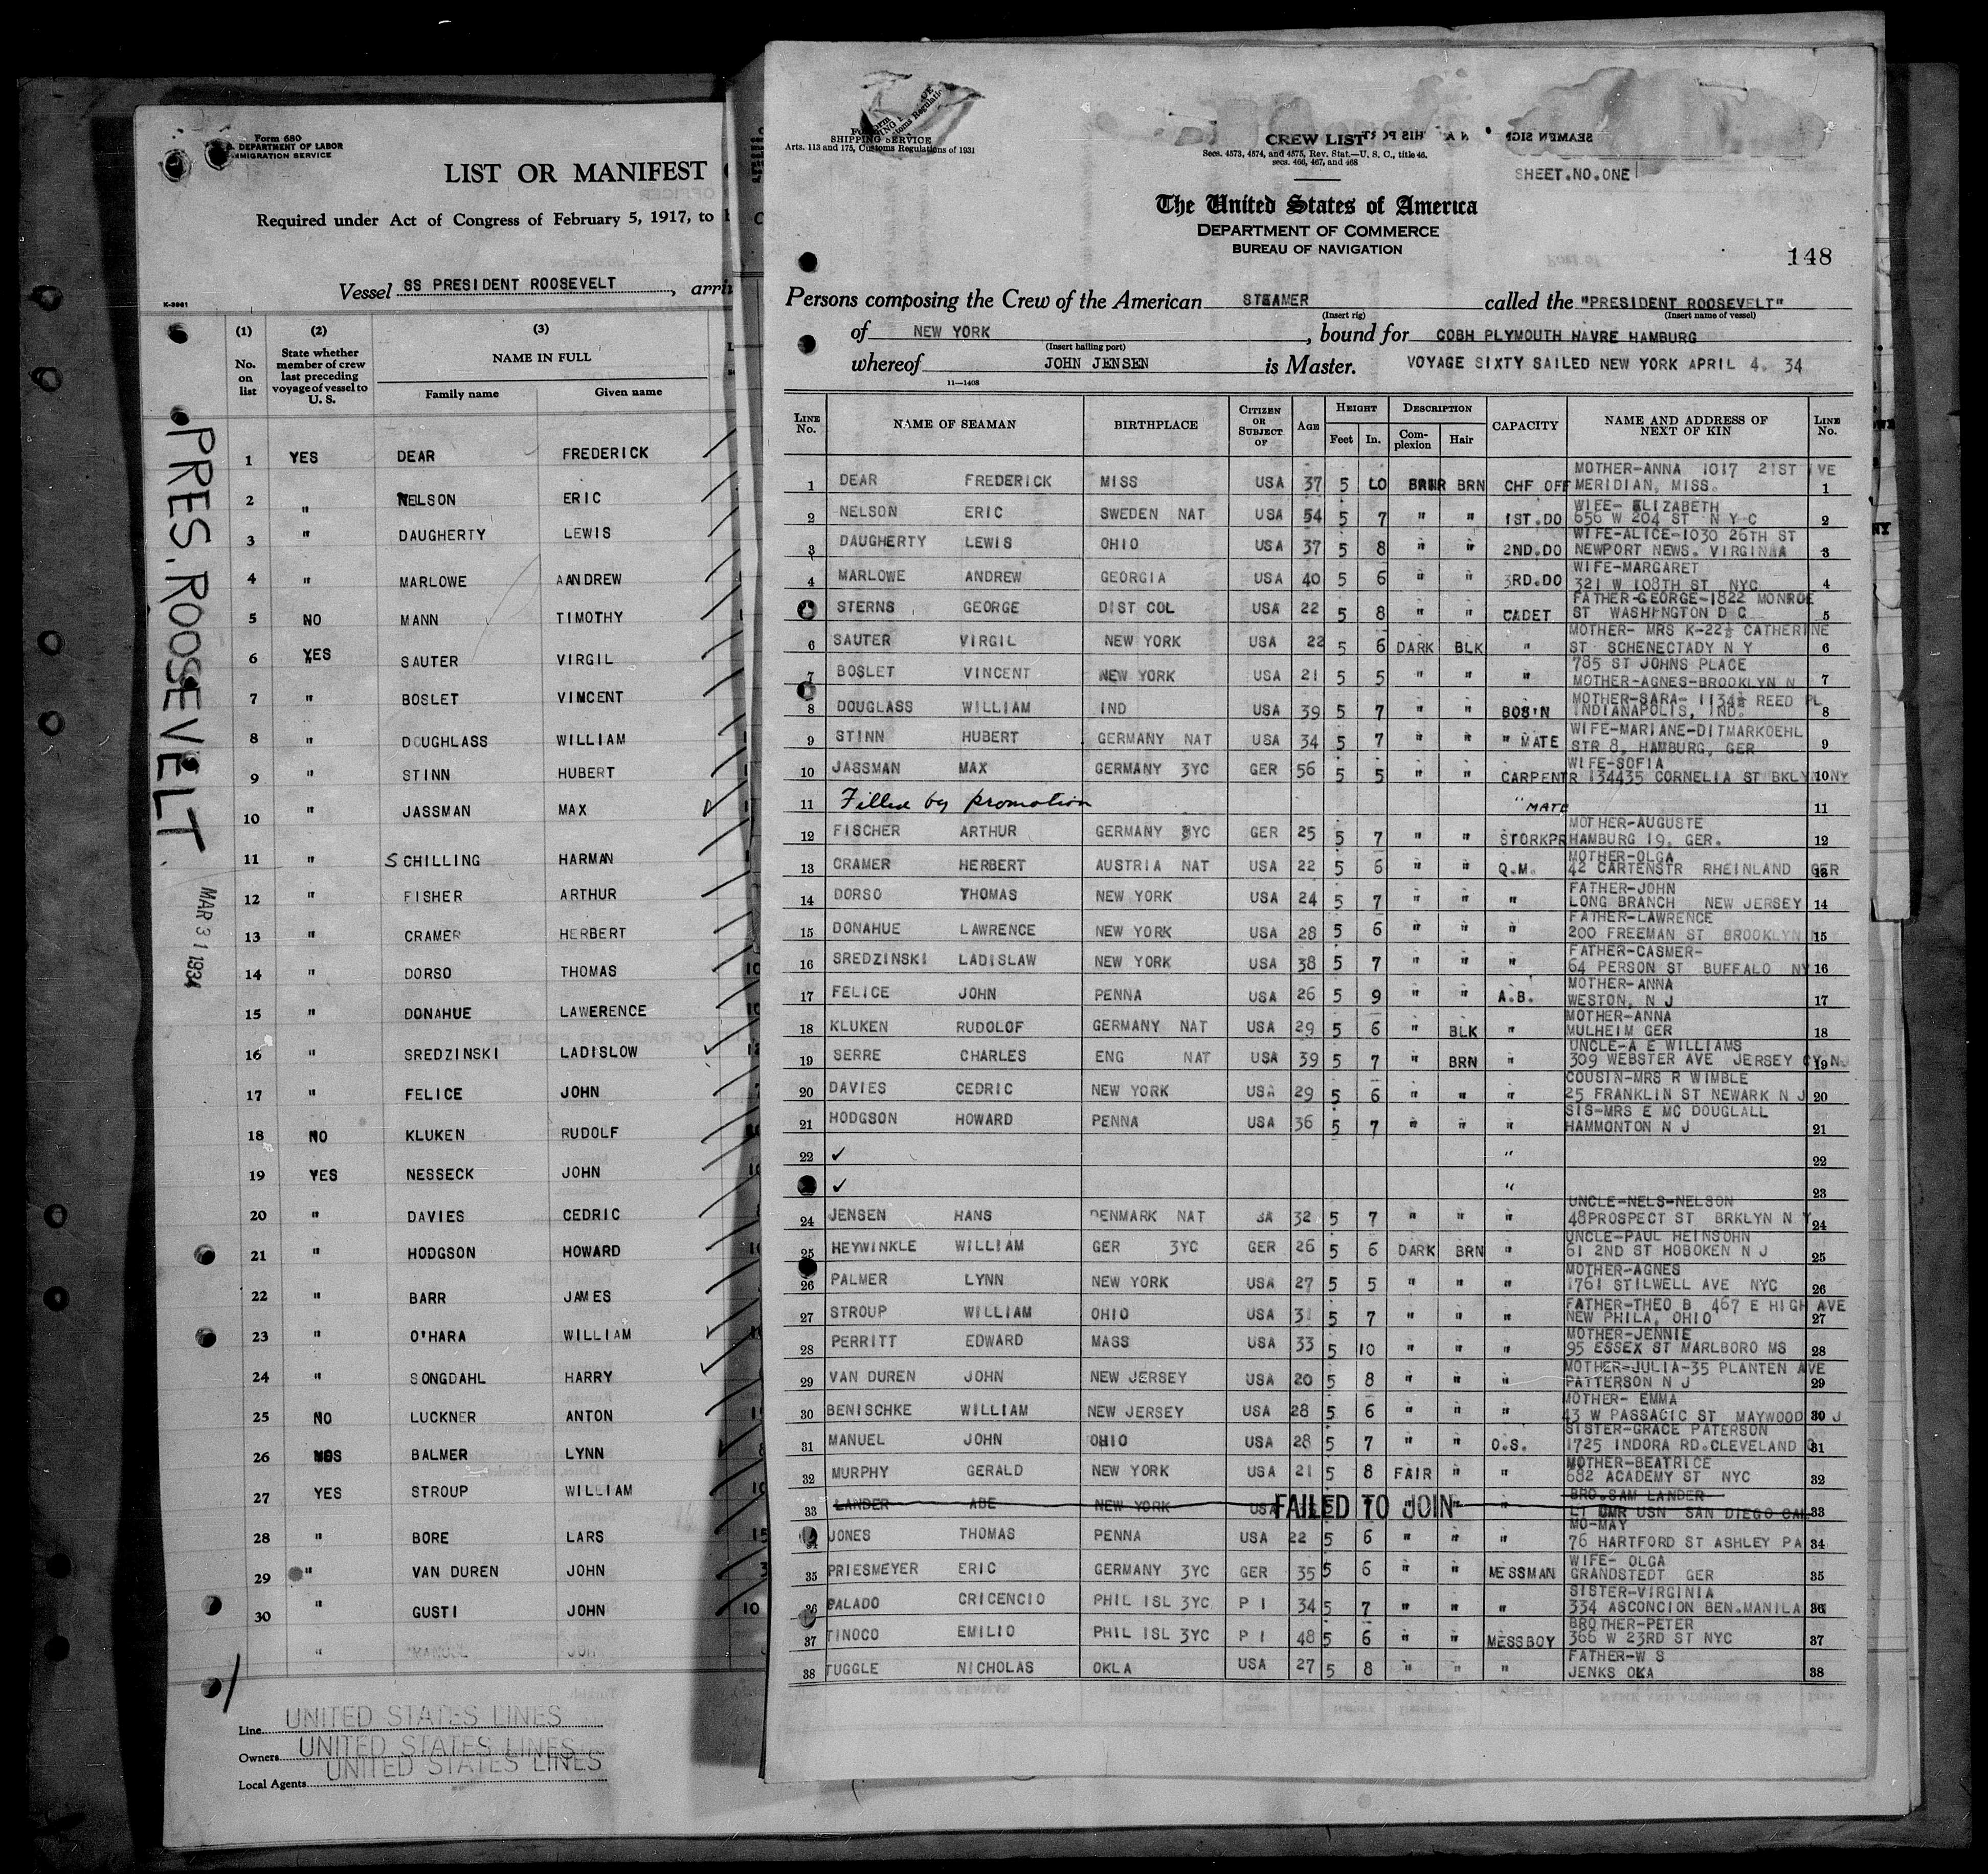 Form 680
DEPARTMENT OF LABOR
IMMIGRATION SERVICE
LIST OR MANIFEST
Required under Act of Congress of February 5, 1917, to
Vessel SS PRESIDENT ROOSEVELT, arri
K-3961
(1) (2) (3)
No. on list State whether member of crew last preceding voyage of vessel to U. S. NAME IN FULL
Family name Given name
1 YES DEAR FREDERICK
2 " NELSON ERIC
3 " DAUGHERTY LEWIS
4 " MARLOWE AANDREW
5 NO MANN TIMOTHY
6 YES SAUTER VIRGIL
7 " BOSLET VIMCENT
8 " DOUGHLASS WILLIAM
9 " STINN HUBERT
10 " JASSMAN MAX
11 " SCHILLING HARMAN
12 " FISHER ARTHUR
13 " CRAMER HERBERT
14 " DORSO THOMAS
15 " DONAHUE LAWERENCE
16 " SREDZINSKI LADISLOW
17 " FELICE JOHN
18 NO KLUKEN RUDOLF
19 YES NESSECK JOHN
20 " DAVIES CEDRIC
21 " HODGSON HOWARD
22 " BARR JAMES
23 " O'HARA WILLIAM
24 " SONGDAHL HARRY
25 NO LUCKNER ANTON
26 BALMER LYNN
27 YES STROUP WILLIAM
28 " BORE LARS
29 " VAN DUREN JOHN
30 " GUSTI JOHN
"
Line UNITED STATES LINES
Owners UNITED STATES LINES
Local Agents UNITED STATES LINES
PRES. ROOSEVELT
MAR 31 1934
SHIPPING SERVICE
Arts. 113 and 175, Customs Regulations of 1931
CREW LIST
Secs. 4573, 4574, and 4575, Rev. Stat.—U. S. C., title 46,
secs. 466, 467, and 468
SHEET.NO.ONE
The United States of America
DEPARTMENT OF COMMERCE
BUREAU OF NAVIGATION
148
Persons composing the Crew of the American STEAMER called the "PRESIDENT ROOSEVELT"
(Insert rig) (Insert name of vessel)
of NEW YORK, bound for COBH PLYMOUTH HAVRE HAMBURG
(Insert hailing port)
whereof JOHN JENSEN is Master. VOYAGE SIXTY SAILED NEW YORK APRIL 4. 34
11—1408
LINE No. NAME OF SEAMAN BIRTHPLACE CITIZEN OR SUBJECT OF AGE HEIGHT Feet In. DESCRIPTION Complexion Hair CAPACITY NAME AND ADDRESS OF NEXT OF KIN LINE No.
MOTHER-ANNA 1017 21ST AVE
1 DEAR FREDERICK MISS USA 37 5 10 BRN BRN CHF OFF MERIDIAN, MISS. 1
WIFE- ELIZABETH
2 NELSON ERIC SWEDEN NAT USA 54 5 7 " " 1ST.DO 656 W 204 ST N Y C 2
WIFE-ALICE-1030 26TH ST
3 DAUGHERTY LEWIS OHIO USA 37 5 8 " " 2ND.DO NEWPORT NEWS. VIRGINAA 3
WIFE-MARGARET
4 MARLOWE ANDREW GEORGIA USA 40 5 6 " " 3RD.DO 321 W 108TH ST NYC 4
FATHER-GEORGE-1822 MONROE
STERNS GEORGE DIST COL USA 22 5 8 " " CADET ST WASHINGTON D C 5
MOTHER- MRS K-22½ CATHERINE
6 SAUTER VIRGIL NEW YORK USA 22 5 6 DARK BLK " ST SCHENECTADY N Y 6
785 ST JOHNS PLACE
7 BOSLET VINCENT NEW YORK USA 21 5 5 " " " MOTHER-AGNES-BROOKLYN N 7
MOTHER-SARA- 1134½ REED PL
8 DOUGLASS WILLIAM IND USA 39 5 7 " " BOS'N INDIANAPOLIS, IND. 8
WIFE-MARIANE-DITMARKOEHL
9 STINN HUBERT GERMANY NAT USA 34 5 7 " " " MATE STR 8, HAMBURG, GER 9
WIFE-SOFIA
10 JASSMAN MAX GERMANY 3YC GER 56 5 5 " " CARPENTR 134435 CORNELIA ST BKLYN NY 10
11 Filled by promotion " MATE 11
MOTHER-AUGUSTE
12 FISCHER ARTHUR GERMANY 3YC GER 25 5 7 " " STORKPR HAMBURG 19. GER. 12
MOTHER-OLGA
13 CRAMER HERBERT AUSTRIA NAT USA 22 5 6 " " Q.M. 42 CARTENSTR RHEINLAND GER 13
FATHER-JOHN
14 DORSO THOMAS NEW YORK USA 24 5 7 " " " LONG BRANCH NEW JERSEY 14
FATHER-LAWRENCE
15 DONAHUE LAWRENCE NEW YORK USA 28 5 6 " " " 200 FREEMAN ST BROOKLYN 15
FATHER-CASMER-
16 SREDZINSKI LADISLAW NEW YORK USA 38 5 7 " " " 64 PERSON ST BUFFALO NY 16
MOTHER-ANNA
17 FELICE JOHN PENNA USA 26 5 9 " " A.B. WESTON, N J 17
MOTHER-ANNA
18 KLUKEN RUDOLOF GERMANY NAT USA 29 5 6 " BLK " MULHEIM GER 18
UNCLE-A E WILLIAMS
19 SERRE CHARLES ENG NAT USA 39 5 7 " BRN " 309 WEBSTER AVE JERSEY CY NJ 19
COUSIN-MRS R WIMBLE
20 DAVIES CEDRIC NEW YORK USA 29 5 6 " " " 25 FRANKLIN ST NEWARK N J 20
SIS-MRS E MC DOUGLALL
21 HODGSON HOWARD PENNA USA 36 5 7 " " " HAMMONTON N J 21
22 ✓ " 22
✓ " 23
UNCLE-NELS-NELSON
24 JENSEN HANS DENMARK NAT SA 32 5 7 " " " 48PROSPECT ST BRKLYN N Y 24
UNCLE-PAUL HEINSOHN
25 HEYWINKLE WILLIAM GER 3YC GER 26 5 6 DARK BRN " 61 2ND ST HOBOKEN N J 25
MOTHER-AGNES
26 PALMER LYNN NEW YORK USA 27 5 5 " " " 1761 STILWELL AVE NYC 26
FATHER-THEO B 467 E HIGH AVE
27 STROUP WILLIAM OHIO USA 31 5 7 " " " NEW PHILA, OHIO 27
MOTHER-JENNIE
28 PERRITT EDWARD MASS USA 33 5 10 " " " 95 ESSEX ST MARLBORO MS 28
MOTHER-JULIA-35 PLANTEN AVE
29 VAN DUREN JOHN NEW JERSEY USA 20 5 8 " " " PATTERSON N J 29
MOTHER- EMMA
30 BENISCHKE WILLIAM NEW JERSEY USA 28 5 6 " " " 43 W PASSACIC ST MAYWOOD J 30
SISTER-GRACE PATERSON
31 MANUEL JOHN OHIO USA 28 5 7 " " O.S. 1725 INDORA RD.CLEVELAND O 31
MOTHER-BEATRICE
32 MURPHY GERALD NEW YORK USA 21 5 8 FAIR " " 682 ACADEMY ST NYC 32
BRO.SAM LANDER
33 LANDER ABE NEW YORK USA FAILED TO JOIN LT USN SAN DIEGO CAL 33
MO-MAY
34 JONES THOMAS PENNA USA 22 5 6 " " " 76 HARTFORD ST ASHLEY PA 34
WIFE- OLGA
35 PRIESMEYER ERIC GERMANY 3YC GER 35 5 6 " " MESSMAN GRANDSTEDT GER 35
SISTER-VIRGINIA
36 PALADO CRICENCIO PHIL ISL 3YC P I 34 5 7 " " " 334 ASCONCION BEN.MANILA 36
BROTHER-PETER
37 TINOCO EMILIO PHIL ISL 3YC P I 48 5 6 " " MESSBOY 366 W 23RD ST NYC 37
FATHER-W S
38 TUGGLE NICHOLAS OKLA USA 27 5 8 " " " JENKS OKA 38